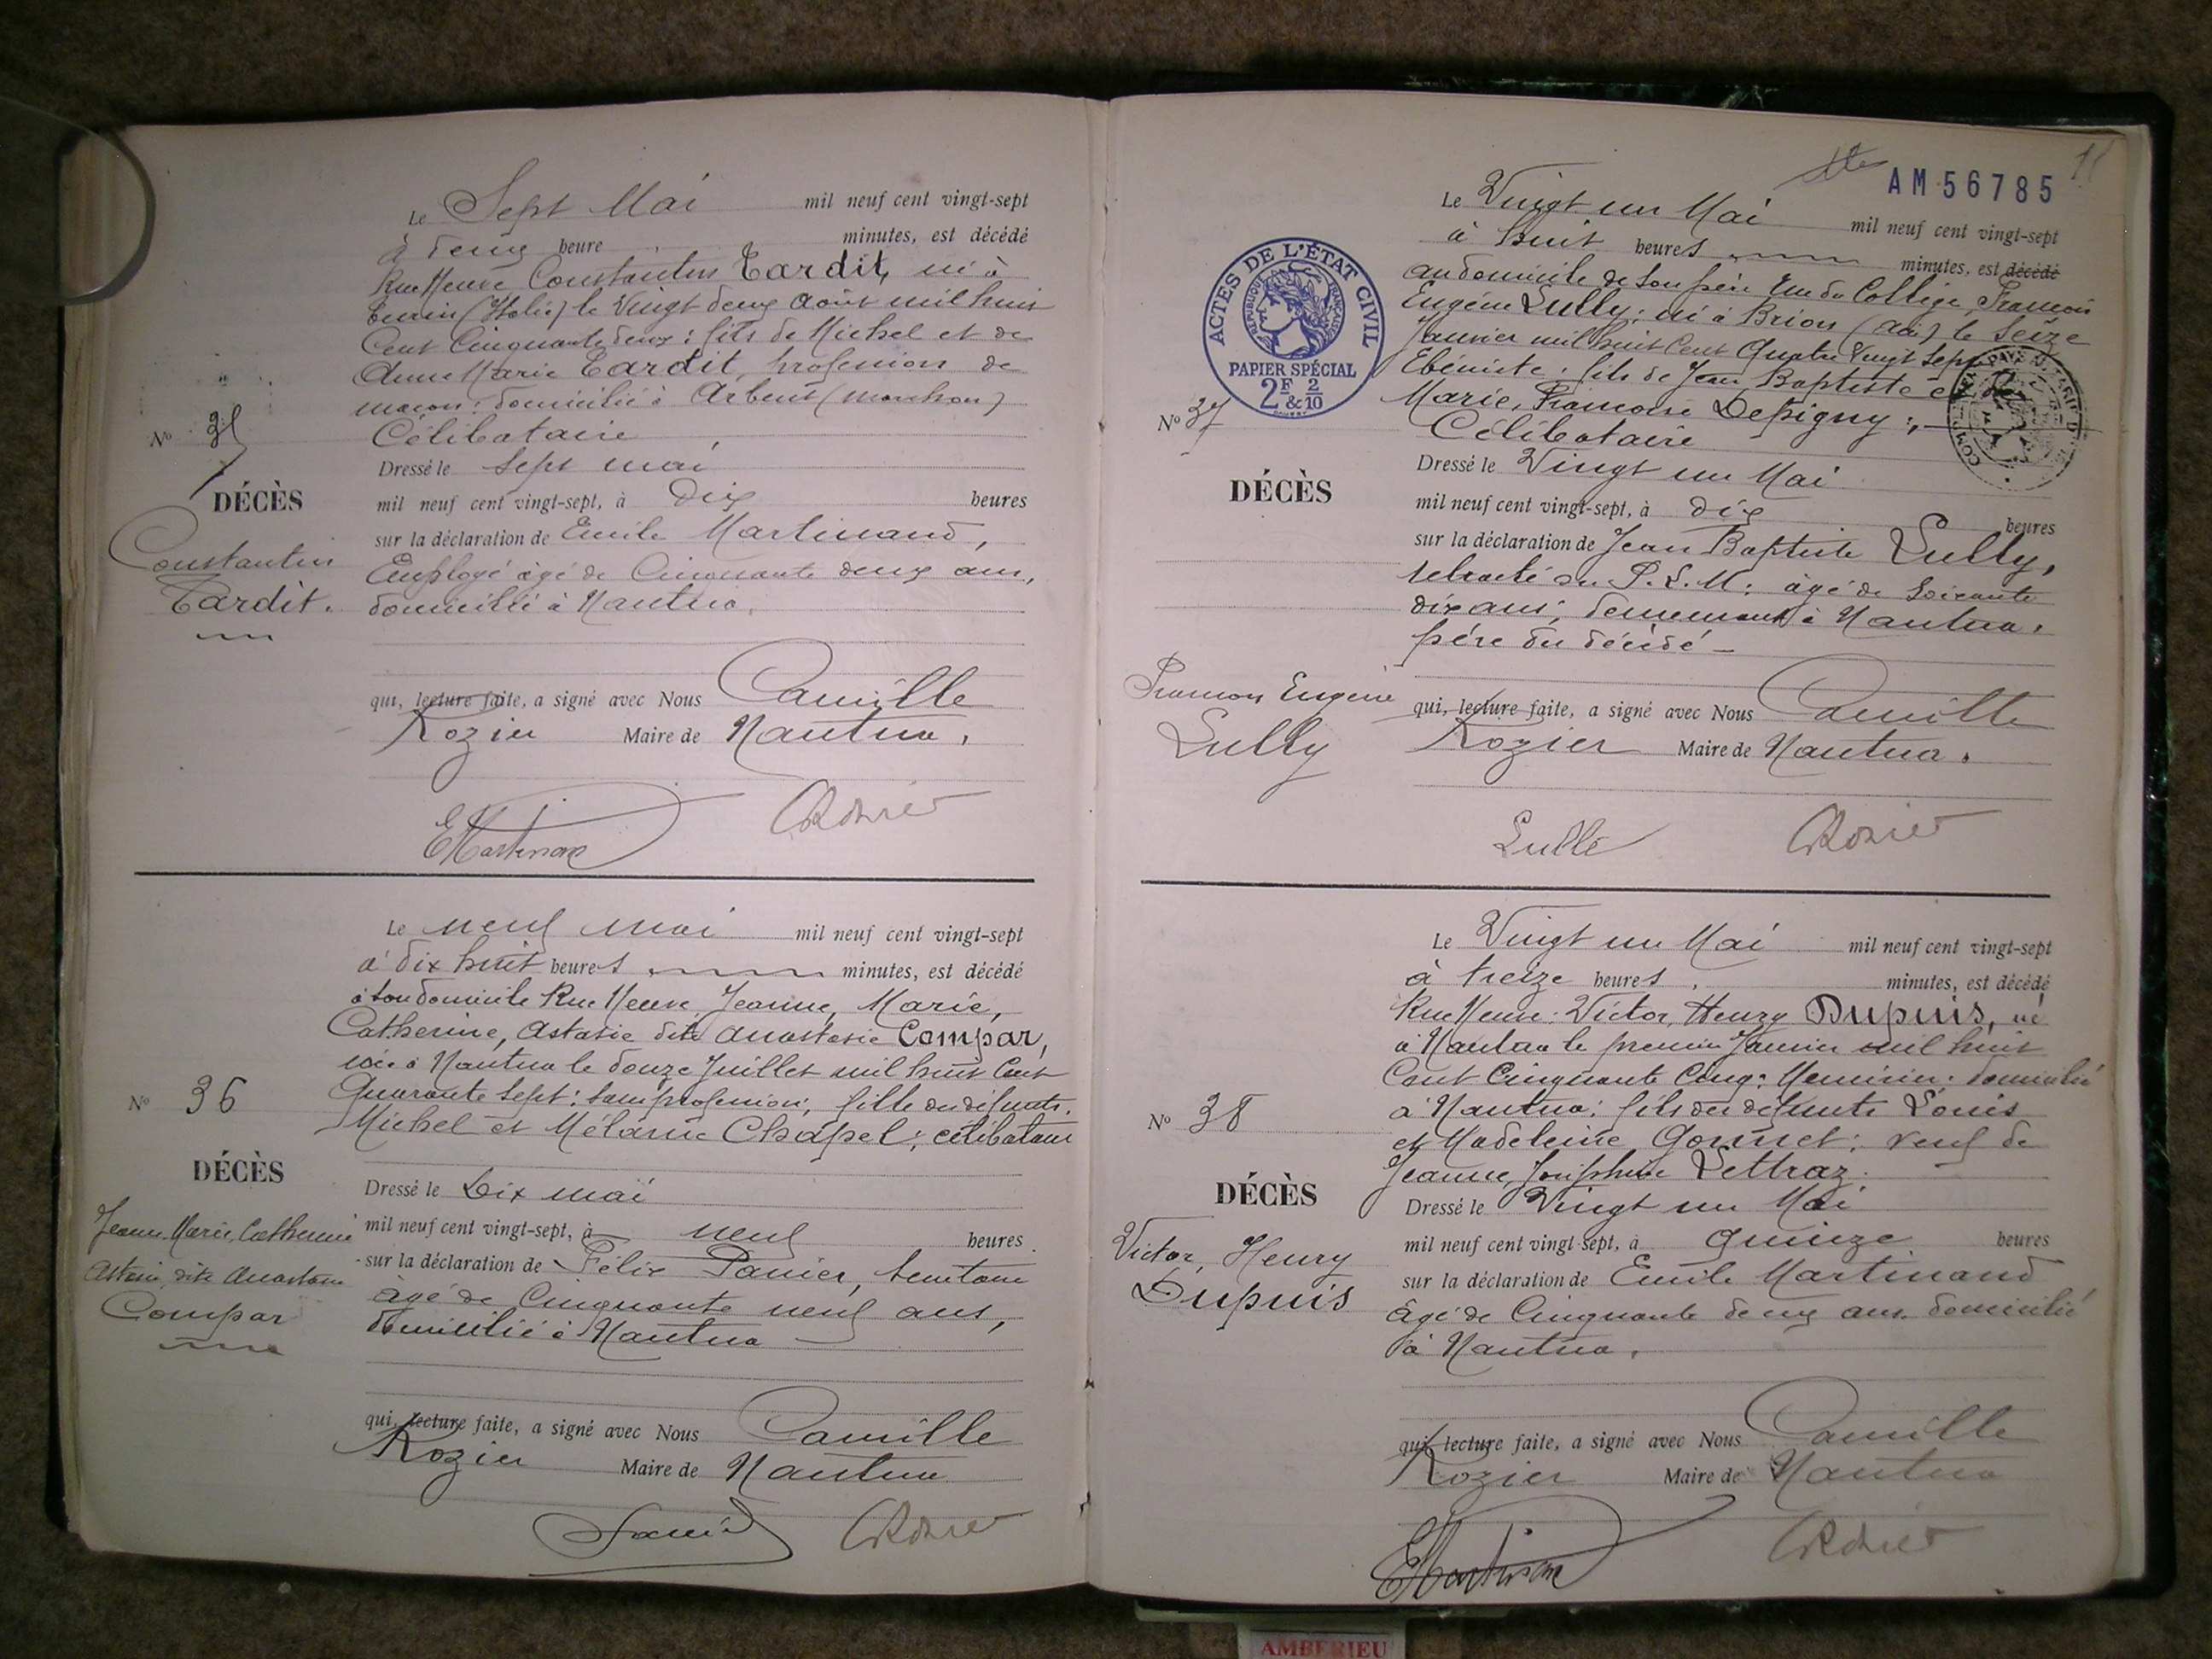 Le Sept Mai mil neuf cent vingt-sept
à deux heure minutes, est décédé
Rue Neuve Constantin Tardit, né à
Turin (Italie) le Vingt deux Août mil huit
Cent Cinquante deux : fils de Michel et de
Anne Marie Tardit, profession de
maçon : domicilié à Arbent (Marchon)
Célibataire
No 35
Dressé le Sept mai
DÉCÈS
mil neuf cent vingt-sept, à Dix heures
Constantin
Tardit.
sur la déclaration de Emile Martinand,
Employé âgé de Cinquante deux ans,
domicilié à Nantua.
qui, lecture faite, a signé avec Nous Camille
Rozier Maire de Nantua.
EMartinand
CRozier
Le neuf mai mil neuf cent vingt-sept
à dix huit heures minutes, est décédé
à son domicile Rue Neuve, Jeanne, Marie,
Catherine, Astasie dite Anastasie Compar,
née à Nantua le douze Juillet mil huit Cent
Quarante Sept : sans profession, fille des défunts
Michel et Mélanie Chapel ; célibataire
No 36
DÉCÈS
Jeanne, Marie, Catherine
Astasie dite Anastasie
Compar
Dressé le Dix mai
mil neuf cent vingt-sept, à neuf heures
sur la déclaration de Félix Panier, Secrétaire
âgé de Cinquante neuf ans,
domicilié à Nantua
qui, lecture faite, a signé avec Nous Camille
Rozier Maire de Nantua
Panier
CRozier
AM 56785
ACTES DE L'ÉTAT CIVIL
RÉPUBLIQUE FRANÇAISE
PAPIER SPÉCIAL
2F & 2/10
Le Vingt un Mai mil neuf cent vingt-sept
à huit heures minutes, est décédé
au domicile de son père Rue du Collège, François
Eugène Lully ; né à Brion (Ain) le Seize
Janvier mil huit Cent Quatre Vingt Sept
Ebéniste : fils de Jean Baptiste et de
Marie, Françoise Depigny ;
Célibataire
No 37
DÉCÈS
François Eugène
Lully
Dressé le Vingt un Mai
mil neuf cent vingt-sept, à dix heures
sur la déclaration de Jean Baptiste Lully,
retraité du P.L.M : âgé de Soixante
dix ans, demeurant à Nantua.
père du décédé
qui, lecture faite, a signé avec Nous Camille
Rozier Maire de Nantua.
Lullé
CRozier
Le Vingt un Mai mil neuf cent vingt-sept
à treize heures minutes, est décédé
Rue Neuve : Victor, Henry Dupuis, né
à Nantua le premier Janvier mil huit
Cent Cinquante Cinq : Menuisier : domicilié
à Nantua ; fils des défunts Louis
et Madeleine Gonnet : veuf de
Jeanne, Joséphine Lettraz.
No 38
DÉCÈS
Victor, Henry
Dupuis
Dressé le Vingt un Mai
mil neuf cent vingt-sept, à Quinze heures
sur la déclaration de Emile Martinand
âgé de Cinquante deux ans. domicilié
à Nantua.
qui, lecture faite, a signé avec Nous Camille
Rozier Maire de Nantua
EMartinand
CRozier
AMBERIEU